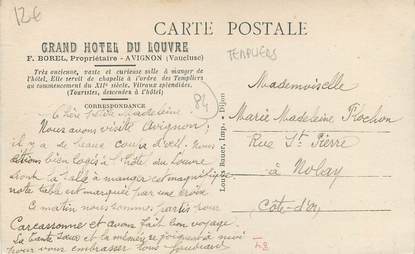 12€
CARTE POSTALE
GRAND HOTEL DU LOUVRE
F. BOREL, Propriétaire - AVIGNON (Vaucluse)
TEMPLIERS
Très ancienne, vaste et curieuse salle à manger de
l'hôtel. Elle servit de chapelle à l'ordre des Templiers
au commencement du XIIe siècle. Vitraux splendides.
(Touristes, descendez à l'hôtel)
CORRESPONDANCE
84
Chère petite Madeleine.
Nous avons visité Avignon;
il y a de beaux coups d'œil. Nous
étions bien logés à l'hôtel du Louvre
dont la salle à manger est magnifique
notre table est marquée par une croix
Ce matin nous sommes partis pour
Carcassonne et avons fait bon voyage.
La tante et la mémée se joignent à moi
pour embrasser tous
Louys Bauer, Imp. - Dijon
Mademoiselle
Marie Madeleine Flochon
Rue St Pierre
à Nolay
Côte-d'Or
84